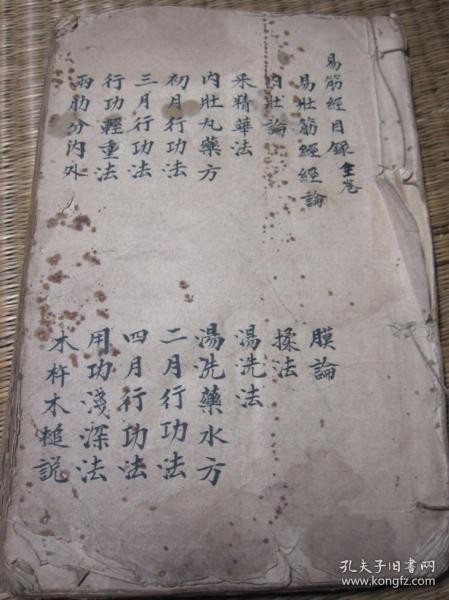 易筋經目錄全卷
易壯筋經經論
膜論
內壯論
揉法
采精華法
湯洗法
內壯丸藥方
湯洗藥水方
初月行功法
二月行功法
三月行功法
四月行功法
行功輕重法
用功淺深法
兩肋分內外
木杵木槌說
孔夫子旧书网
www.kongfz.com